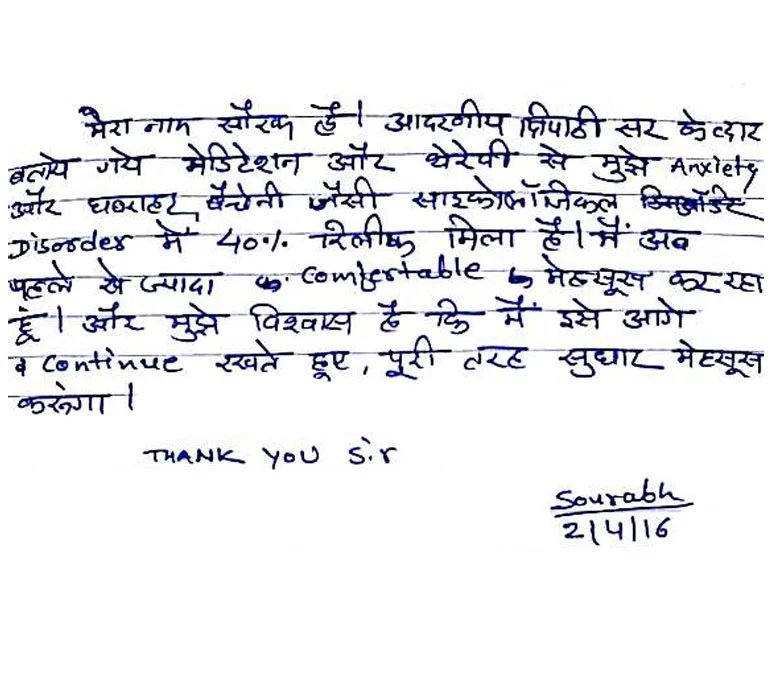 मेरा नाम सौरभ है। आदरणीय त्रिपाठी सर के द्वारा
बताये गये मेडिटेशन और थेरेपी से मुझे Anxiety
और घबराहट, बैचेनी जैसी साइकोलॉजिकल
Disorder में 40% रिलीफ मिला है। मैं अब
पहले से ज्यादा Comfertable मेहसूस कर रहा
हूं। और मुझे विश्वास है कि मैं इसे आगे
continue रखते हूए, पूरी तरह सुधार मेहसूस
करूंगा।
THANK YOU Sir
Sourabh
2/4/16